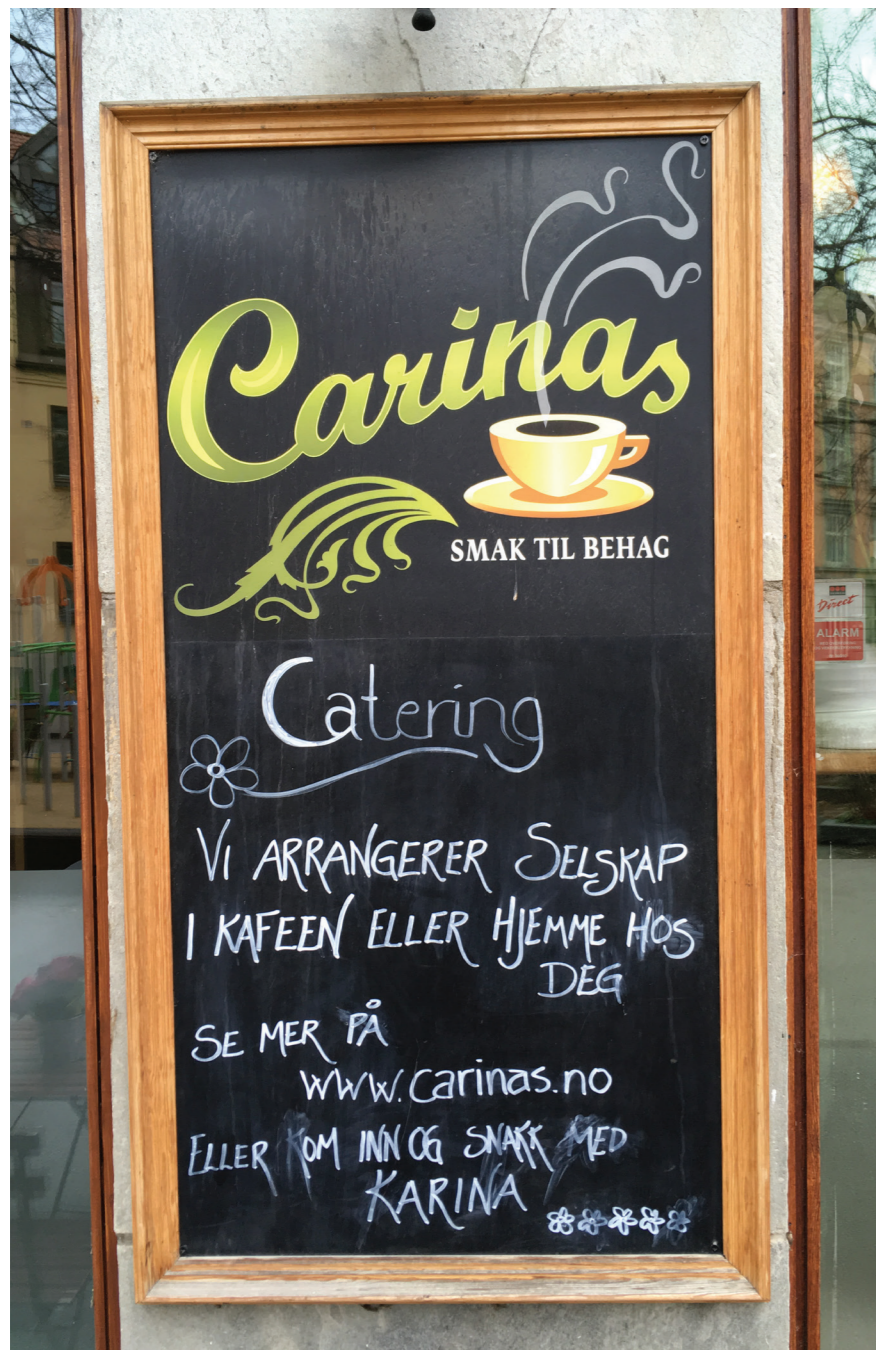 Carinas
SMAK TIL BEHAG
Catering
VI ARRANGERER SELSKAP
I KAFEEN ELLER HJEMME HOS
DEG
SE MER PÅ
www.carinas.no
ELLER KOM INN OG SNAKK MED
KARINA
Direct
ALARM